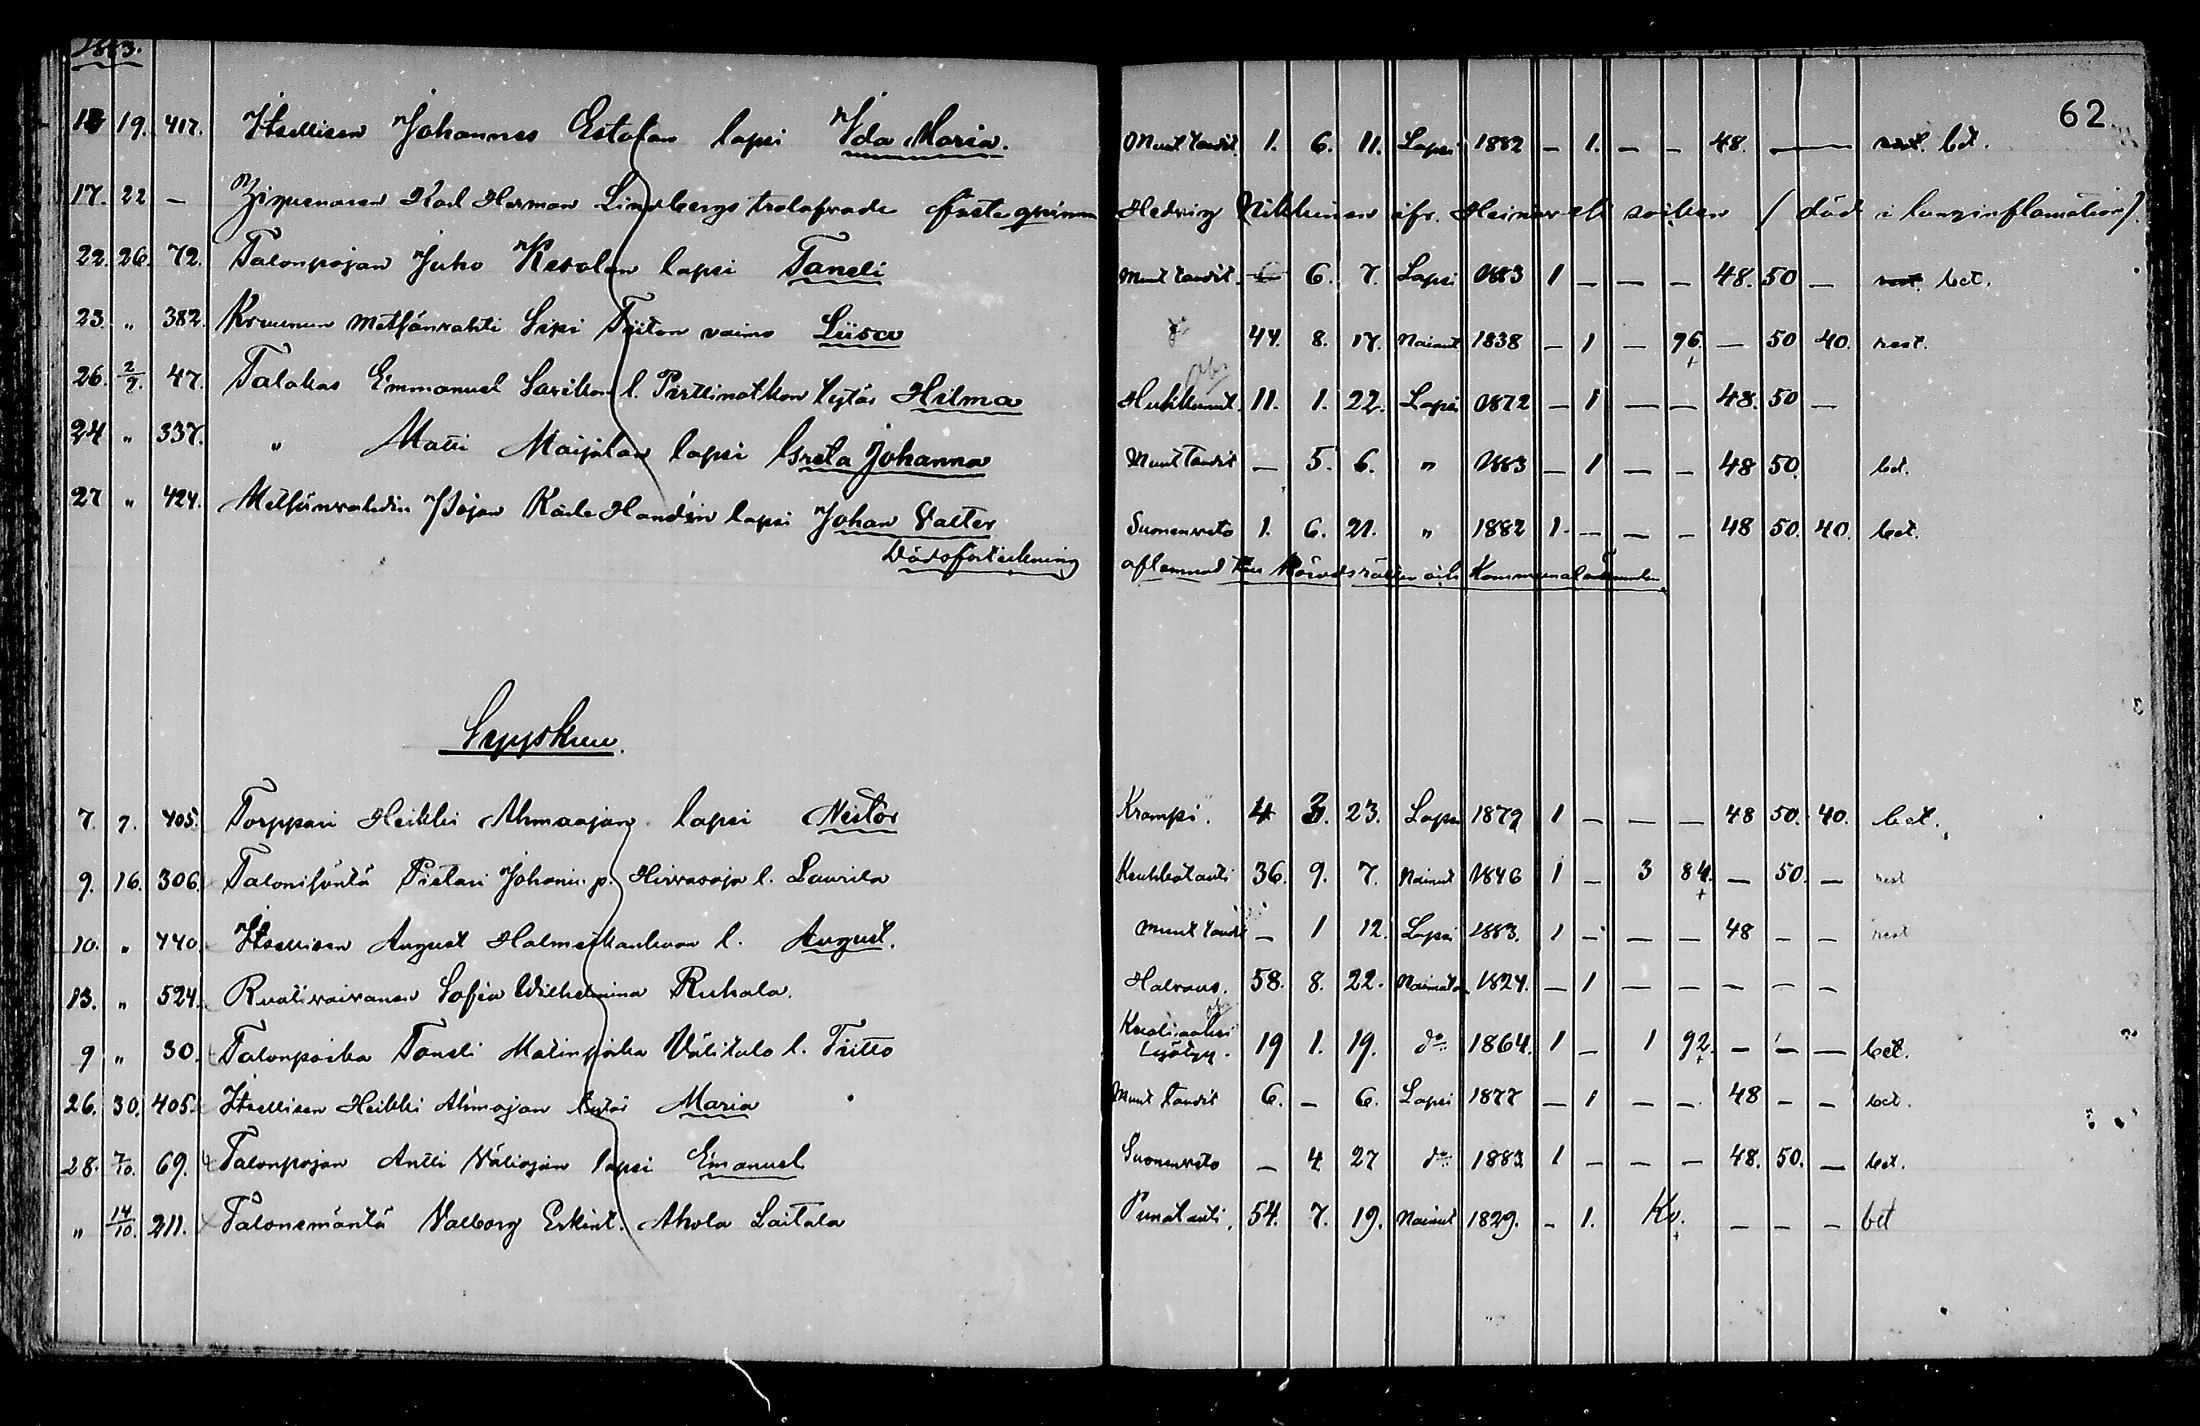 1883.
62
18 19. 417. Itsellisen Johannes Estolan lapsi Ida Maria. Muut taudit. 1. 6. 11. Lapsi 1882 — 1. — — 48. — bet.
17. 22 — Zigenaren Karl Herman Lindbergs trolofvade fästeqvinna Hedvig Nikkinen ifr. /död i lunginflamation/.
22. 26. 72. Talonpojan Juho Keralan lapsi Taneli Muut taudit. — 6. 7. Lapsi 1883 1 — — — 48. 50 — rest. bet.
23. " 382. Kruunun metsänvahti Sipi Tiiton vaimo Liisa 44. 8. 17. Nainut 1838 — 1 — 96 — 50 40. rest.
26. 2/9. 47. Talokas Emmanuel Sarikon l. Pirttimatkon tytär Hilma Hukkunut. 11. 1. 22. Lapsi 1872 — 1 — — 48. 50 —
24 " 337. " Matti Maijalan lapsi Greta Johanna Muut taudit — 5. 6. " 1883 — 1 — — 48 50. bet.
27 " 424. Metsänvahdin Kalle Handin lapsi Johan Valter Suonenveto 1. 6. 21. " 1882 1. — — — 48 50. 40. bet.
Dödsförteckning aflemnad till Häradsrätten och Kommunalnämnden.
Syyskuu.
7. 9. 405. Torppari Heikki Ahmaojan lapsi Nestor Krampi. 4 3. 23. Lapsi 1879 1 — — — 48 50. 40. bet.
9. 16. 306. Talonisäntä Pietari Johanin p. Hirvasoja l. Laurila Keuhkotauti 36. 9. 7. Nainut 1846 1 — 3 84. — 50. — rest
10. " 440. Itsellisen August Holmströmin l. August. Muut taudit — 1 12. Lapsi 1883. 1 — — — 48 — — rest
13. " 524. Ruotivaivanen Sofia Wilhelmina Ruhala. Halvaus. 58. 8. 22. Naimaton 1824. — 1 — — — — —
9 " 30. Talonpoika Taneli Matinpoika Välitalo l. Tiitto 19 1. 19. do 1864. 1 — 1 92. — — — bet.
26. 30. 405. Itsellisen Heikki Ahmaojan tytär Maria Muut taudit 6. — 6. Lapsi 1877 — 1 — — 48 — — bet.
28. 7/10. 69. Talonpojan Antti Väliojan lapsi Emanuel Suonenveto — 4 27 do 1883 1 — — — 48. 50. — bet.
" 14/10. 211. Talonemäntä Valborg Erkint. Ahola Laitala Punatauti. 54. 7. 19. Nainut 1829. — 1. Kv. — — — bet